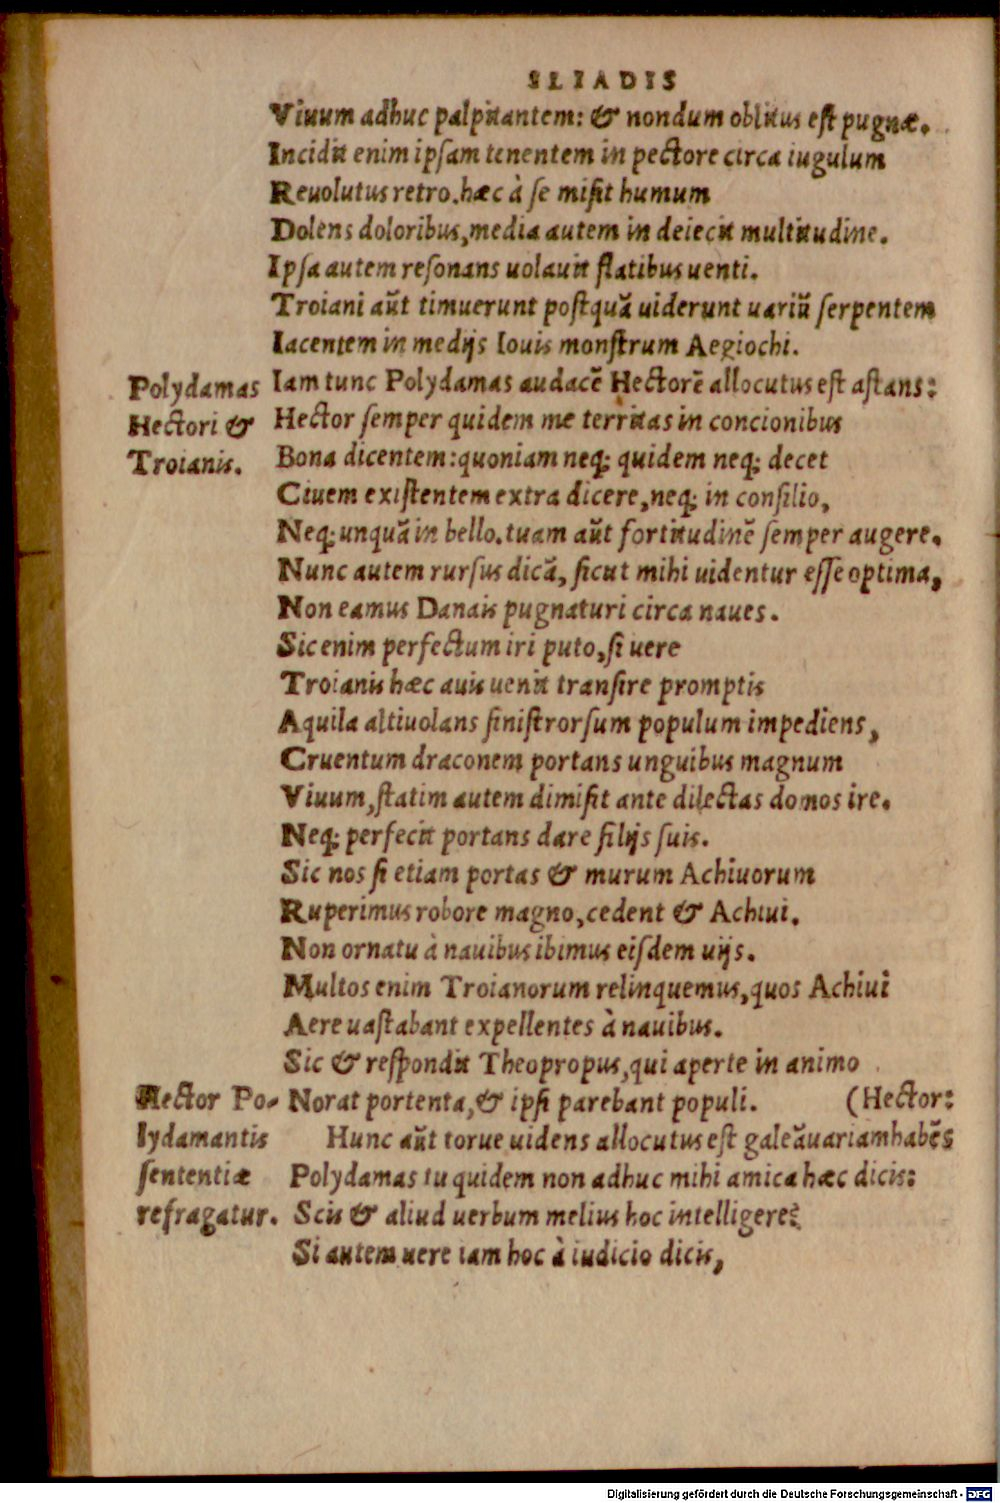 ILIADIS
Viuum adhuc palpitantem: & nondum oblitus est pugnæ.
Incidit enim ipsam tenentem in pectore circa iugulum
Reuolutus retro.hæc à se misit humum
Dolens doloribus,media autem in deiecit multitudine.
Ipsa autem resonans uolauit flatibus uenti.
Troiani aũt timuerunt postquã uiderunt uariũ serpentem
Iacentem in medijs Iouis monstrum Aegiochi.
Polydamas Hectori & Troianis.
Iam tunc Polydamas audacẽ Hectorẽ allocutus est astans:
Hector semper quidem me territas in concionibus
Bona dicentem:quoniam neq; quidem neq; decet
Ciuem existentem extra dicere,neq; in consilio,
Neq; unquã in bello.tuam aũt fortitudinẽ semper augere.
Nunc autem rursus dicã, sicut mihi uidentur esse optima,
Non eamus Danais pugnaturi circa naues.
Sic enim perfectum iri puto,si uere
Troianis hæc auis uenit transire promptis
Aquila altiuolans sinistrorsum populum impediens,
Cruentum draconem portans unguibus magnum
Viuum,statim autem dimisit ante dilectas domos ire.
Neq; perfecit portans dare filijs suis.
Sic nos si etiam portas & murum Achiuorum
Ruperimus robore magno,cedent & Achiui.
Non ornatu à nauibus ibimus eisdem uijs.
Multos enim Troianorum relinquemus,quos Achiui
Aere uastabant expellentes à nauibus.
Sic & respondit Theopropus,qui aperte in animo
Hector Polydamantis sententiæ refragatur.
Norat portenta,& ipsi parebant populi. (Hector:
Hunc aũt torue uidens allocutus est galeã uariam habẽs
Polydamas tu quidem non adhuc mihi amica hæc dicis:
Scis & aliud uerbum melius hoc intelligere?
Si autem uere iam hoc à iudicio dicis,
Digitalisierung gefördert durch die Deutsche Forschungsgemeinschaft - DFG